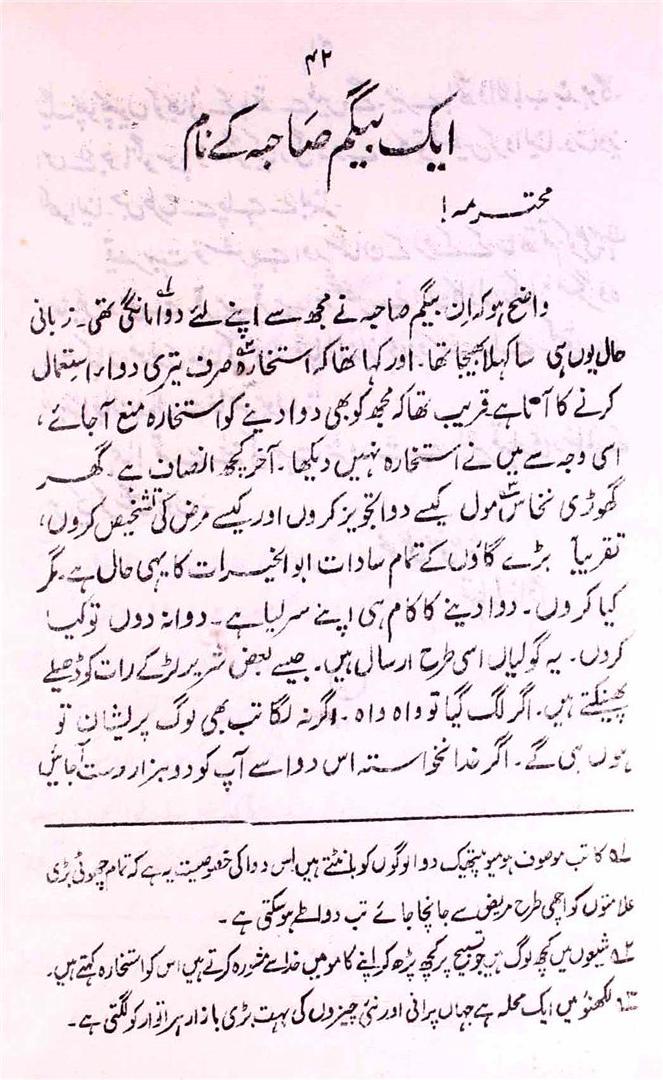 ۴۲
ایک بیگم صاحبہ کے نام
محترمہ!
واضح ہو کہ ان بیگم صاحبہ نے مجھ سے اپنے لئے دوا۱؎ مانگی تھی۔ زبانی
حال یوں ہی سا کہلا بھیجا تھا۔ اور کہا تھا کہ استخارہ۲؎ صرف تیری دواء استعمال
کرنے کا آتا ہے قریب تھا کہ مجھ کو بھی دوا دینے کو استخارہ منع آجائے،
اسی وجہ سے میں نے استخارہ نہیں دیکھا۔ آخر کچھ انصاف ہے۔ گھر
گھوڑی نخاس۳؎ مول کیسے دوا تجویز کروں اور کیسے مرض کی تشخیص کروں،
تقریباً بڑے گاؤں کے تمام سادات ابوالخیرات کا یہی حال ہے۔ مگر
کیا کروں۔ دوا دینے کا کام ہی اپنے سر لیا ہے۔ دوا نہ دوں تو کیا
کروں۔ یہ گولیاں اسی طرح ارسال ہیں۔ جیسے بعض شریر لڑکے رات کو ڈھیلے
پھینکتے ہیں۔ اگر لگ گیا تو واہ واہ۔ اگر نہ لگا تب بھی لوگ پریشان تو
ہوں ہی گے۔ اگر خدانخواستہ اس دوا سے آپ کو دو ہزار دست آجائیں
۱؎ کاتب موصوف ہومیوپیتھیک دوا لوگوں کو بانٹتے ہیں اس دوا کی خصوصیت یہ ہے کہ تمام چھوٹی بڑی
علامتوں کو اچھی طرح مریض سے جانچا جائے تب دوا طے ہوسکتی ہے۔
۲؎ شیعوں میں کچھ لوگ ہیں جو تسبیح پر کچھ پڑھ کر اپنے کاموں میں خدا سے مشورہ کرتے ہیں اس کو استخارہ کہتے ہیں۔
۳؎ لکھنؤ میں ایک محلہ ہے جہاں پرانی اور نئی چیزوں کی بہت بڑی بازار ہر اتوار کو لگتی ہے۔